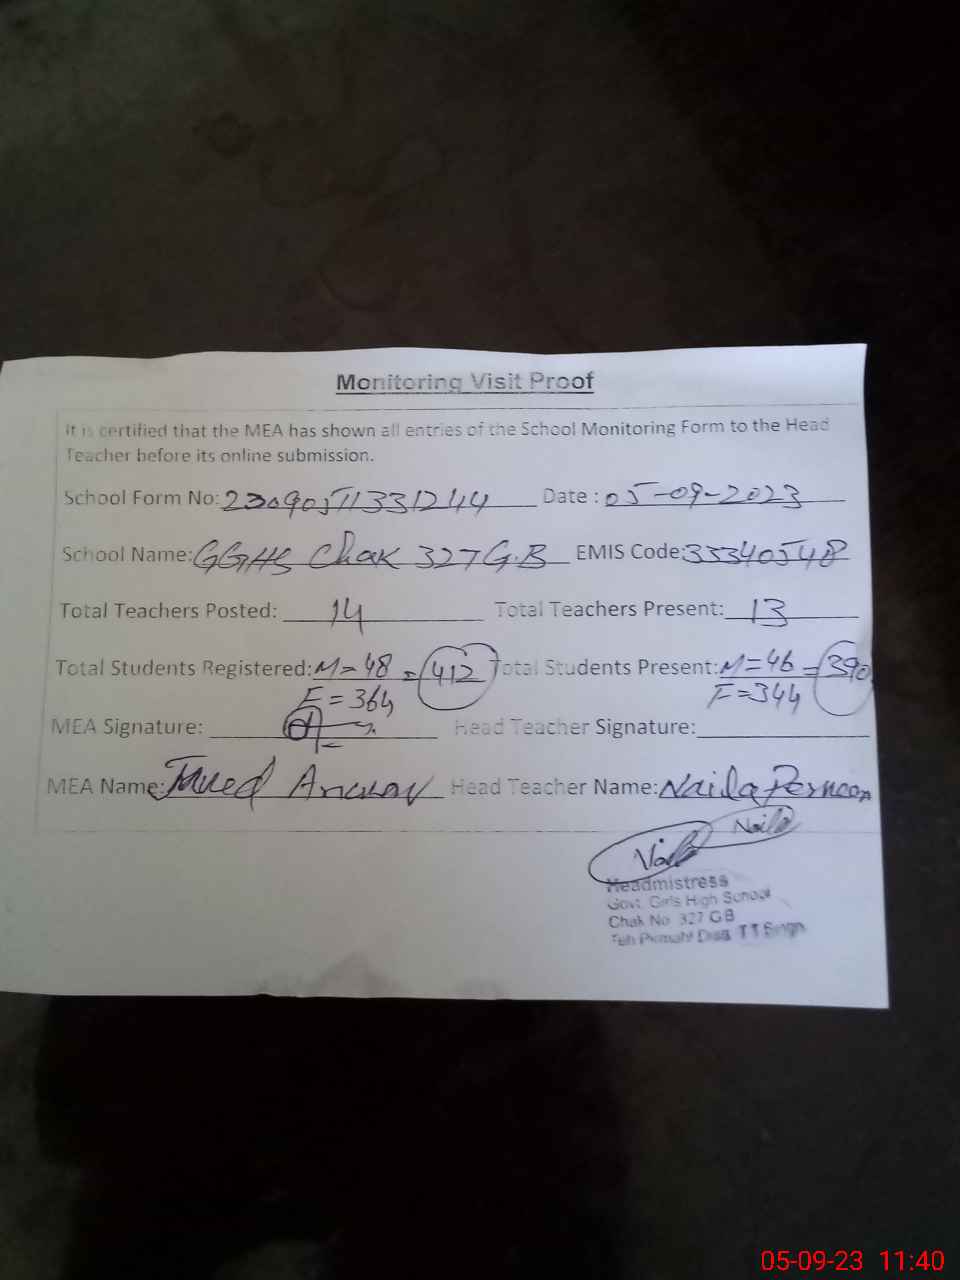 Monitoring Visit Proof
It is certified that the MEA has shown all entries of the School Monitoring Form to the Head
Teacher before its online submission.
School Form No: 23090511331244 Date : 05-09-2023
School Name: GGHS Chak 327 G.B EMIS Code: 33340548
Total Teachers Posted: 14 Total Teachers Present: 13
Total Students Registered: M=48 = 412 Total Students Present: M=46 = 390
F=364 F=344
MEA Signature: Head Teacher Signature:
MEA Name: Javed Anwar Head Teacher Name: Naila Perneen
Naila
Naila
Headmistress
Govt. Girls High School
Chak No 327 GB
Teh Pirmahl Distt T T Singh
05-09-23 11:40